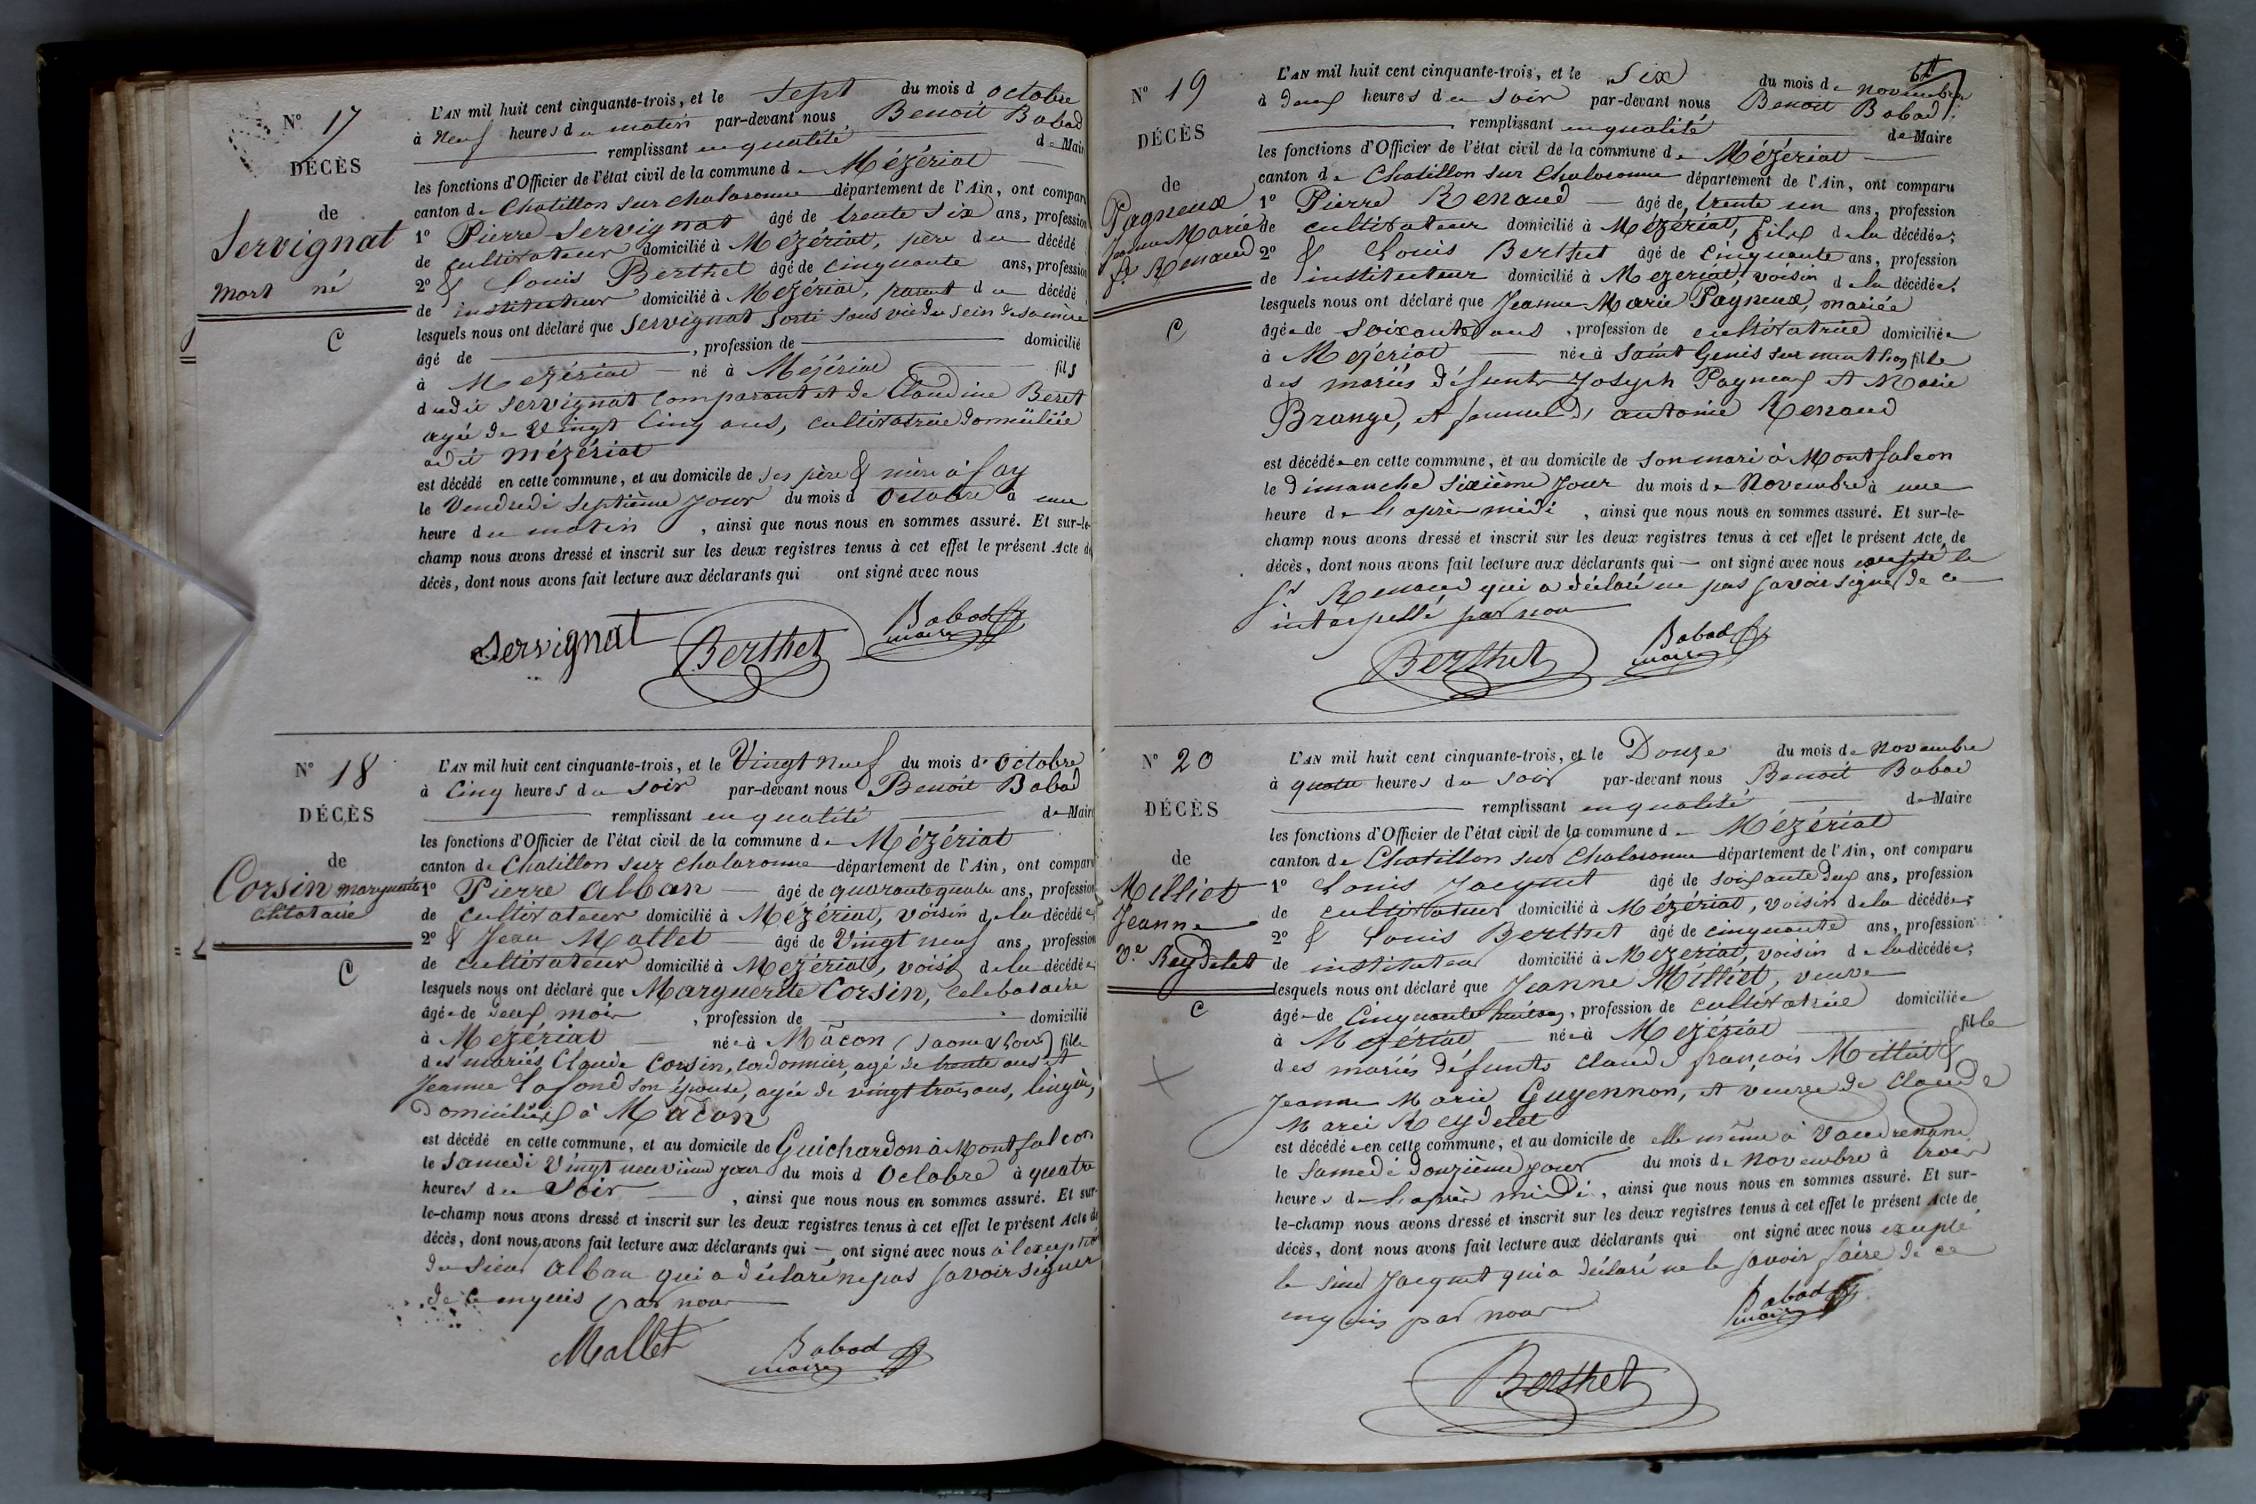 N° 17
DÉCÈS
de
Servignat
mort né
C
L'AN mil huit cent cinquante-trois, et le sept du mois d octobre
à neuf heures du matin par-devant nous Benoit Babad
remplissant en qualité de Maire
les fonctions d'Officier de l'état civil de la commune de Mézériat
canton de Chatillon sur chalaronne département de l'Ain, ont comparu
1° Pierre Servignat âgé de trente six ans, profession
de cultivateur domicilié à Mézériat, père du décédé
2° & Louis Berthet âgé de cinquante ans, profession
de instituteur domicilié à Mézériat, parent du décédé
lesquels nous ont déclaré que Servignat sorti sans vie du sein de sa mère
âgé de , profession de domicilié
à Mézériat né à Mézériat fils
dudit Servignat comparant et de Claudine Beret
agée de vingt cinq ans, cultivatrice domiciliée
audit Mézériat
est décédé en cette commune, et au domicile de ses père & mère à fay
le Vendredi septième jour du mois d octobre à une
heure du matin , ainsi que nous nous en sommes assuré. Et sur-le-
champ nous avons dressé et inscrit sur les deux registres tenus à cet effet le présent Acte de
décès, dont nous avons fait lecture aux déclarants qui ont signé avec nous
Servignat Berthet Babad
maire
N° 18
DÉCÈS
de
Corsin marguerite
célibataire
C
L'AN mil huit cent cinquante-trois, et le Vingt neuf du mois d'octobre
à cinq heures du soir par-devant nous Benoit Babad
remplissant en qualité de Maire
les fonctions d'Officier de l'état civil de la commune de Mézériat
canton de Chatillon sur chalaronne département de l'Ain, ont comparu
1° Pierre Alban âgé de quarante quatre ans, profession
de cultivateur domicilié à Mézériat, voisin de la décédée
2° & Jean Mallet âgé de Vingt neuf ans, profession
de cultivateur domicilié à Mézériat, voisin de la décédée
lesquels nous ont déclaré que Marguerite Corsin, célibataire
âgée de deux mois , profession de domicilié
à Mézériat née à Mâcon (Saone & Loire) fille
des mariés Claude Corsin, cordonnier, agé de trente ans et
Jeanne Lafond son épouse, agée de vingt trois ans, lingère,
domiciliés à Mâcon
est décédé en cette commune, et au domicile de Guichardon à Montfalcon
le Samedi Vingt neuvième jour du mois d octobre à quatre
heures du Soir , ainsi que nous nous en sommes assuré. Et sur-
le-champ nous avons dressé et inscrit sur les deux registres tenus à cet effet le présent Acte de
décès, dont nous avons fait lecture aux déclarants qui ont signé avec nous à l'exception
du sieur Alban qui a déclaré ne pas savoir signer
de ce enquis par nous
Mallet Babad
maire
N° 19
DÉCÈS
de
Pagneux
Jeanne Marie
fe Renaud
C
L'AN mil huit cent cinquante-trois, et le Six du mois de novembre
à deux heures du soir par-devant nous Benoit Babad
remplissant en qualité de Maire
les fonctions d'Officier de l'état civil de la commune de Mézériat
canton de Chatillon sur Chalaronne département de l'Ain, ont comparu
1° Pierre Renaud âgé de trente un ans, profession
de cultivateur domicilié à Mézériat, fils de la décédée;
2° & Louis Berthet âgé de cinquante ans, profession
de instituteur domicilié à Mézériat, voisin de la décédée;
lesquels nous ont déclaré que Jeanne Marie Pagneux, mariée
âgée de soixante ans , profession de cultivatrice domiciliée
à Mézériat née à Saint Genis sur menthon fille
des mariés défunts Joseph Pagneux et Marie
Brange, et femme d'antoine Renaud
est décédée en cette commune, et au domicile de son mari à Montfalcon
le dimanche sixième jour du mois de Novembre à une
heure de l'après midi , ainsi que nous nous en sommes assuré. Et sur-le-
champ nous avons dressé et inscrit sur les deux registres tenus à cet effet le présent Acte de
décès, dont nous avons fait lecture aux déclarants qui ont signé avec nous excepté le
sr Renaud qui a déclaré ne pas savoir signer de ce
interpellé par nous
Berthet Babad
maire
N° 20
DÉCÈS
de
Milliet
Jeanne
Ve Reydelet
C
L'AN mil huit cent cinquante-trois, et le Douze du mois de novembre
à quatre heures du soir par-devant nous Benoit Babad
remplissant en qualité de Maire
les fonctions d'Officier de l'état civil de la commune de Mézériat
canton de Chatillon sur Chalaronne département de l'Ain, ont comparu
1° Louis Jacquet âgé de soixante deux ans, profession
de cultivateur domicilié à Mézériat, voisin de la décédée;
2° & Louis Berthet âgé de cinquante ans, profession
de instituteur domicilié à Mézériat, voisin de la décédée;
lesquels nous ont déclaré que Jeanne Milliet, veuve
âgée de Cinquante huit ans, profession de cultivatrice domiciliée
à Mézériat née à Mézériat fille
des mariés défunts Claude françois Milliet &
Jeanne Marie Guyennon, et veuve de Claude
Marie Reydelet
est décédée en cette commune, et au domicile de elle même à Vaudrenand
le Samedi douzième jour du mois de novembre à trois
heures de l'après midi , ainsi que nous nous en sommes assuré. Et sur-
le-champ nous avons dressé et inscrit sur les deux registres tenus à cet effet le présent Acte de
décès, dont nous avons fait lecture aux déclarants qui ont signé avec nous excepté
le sieur Jacquet qui a déclaré ne le savoir faire de ce
enquis par nous
Babad
maire
Berthet